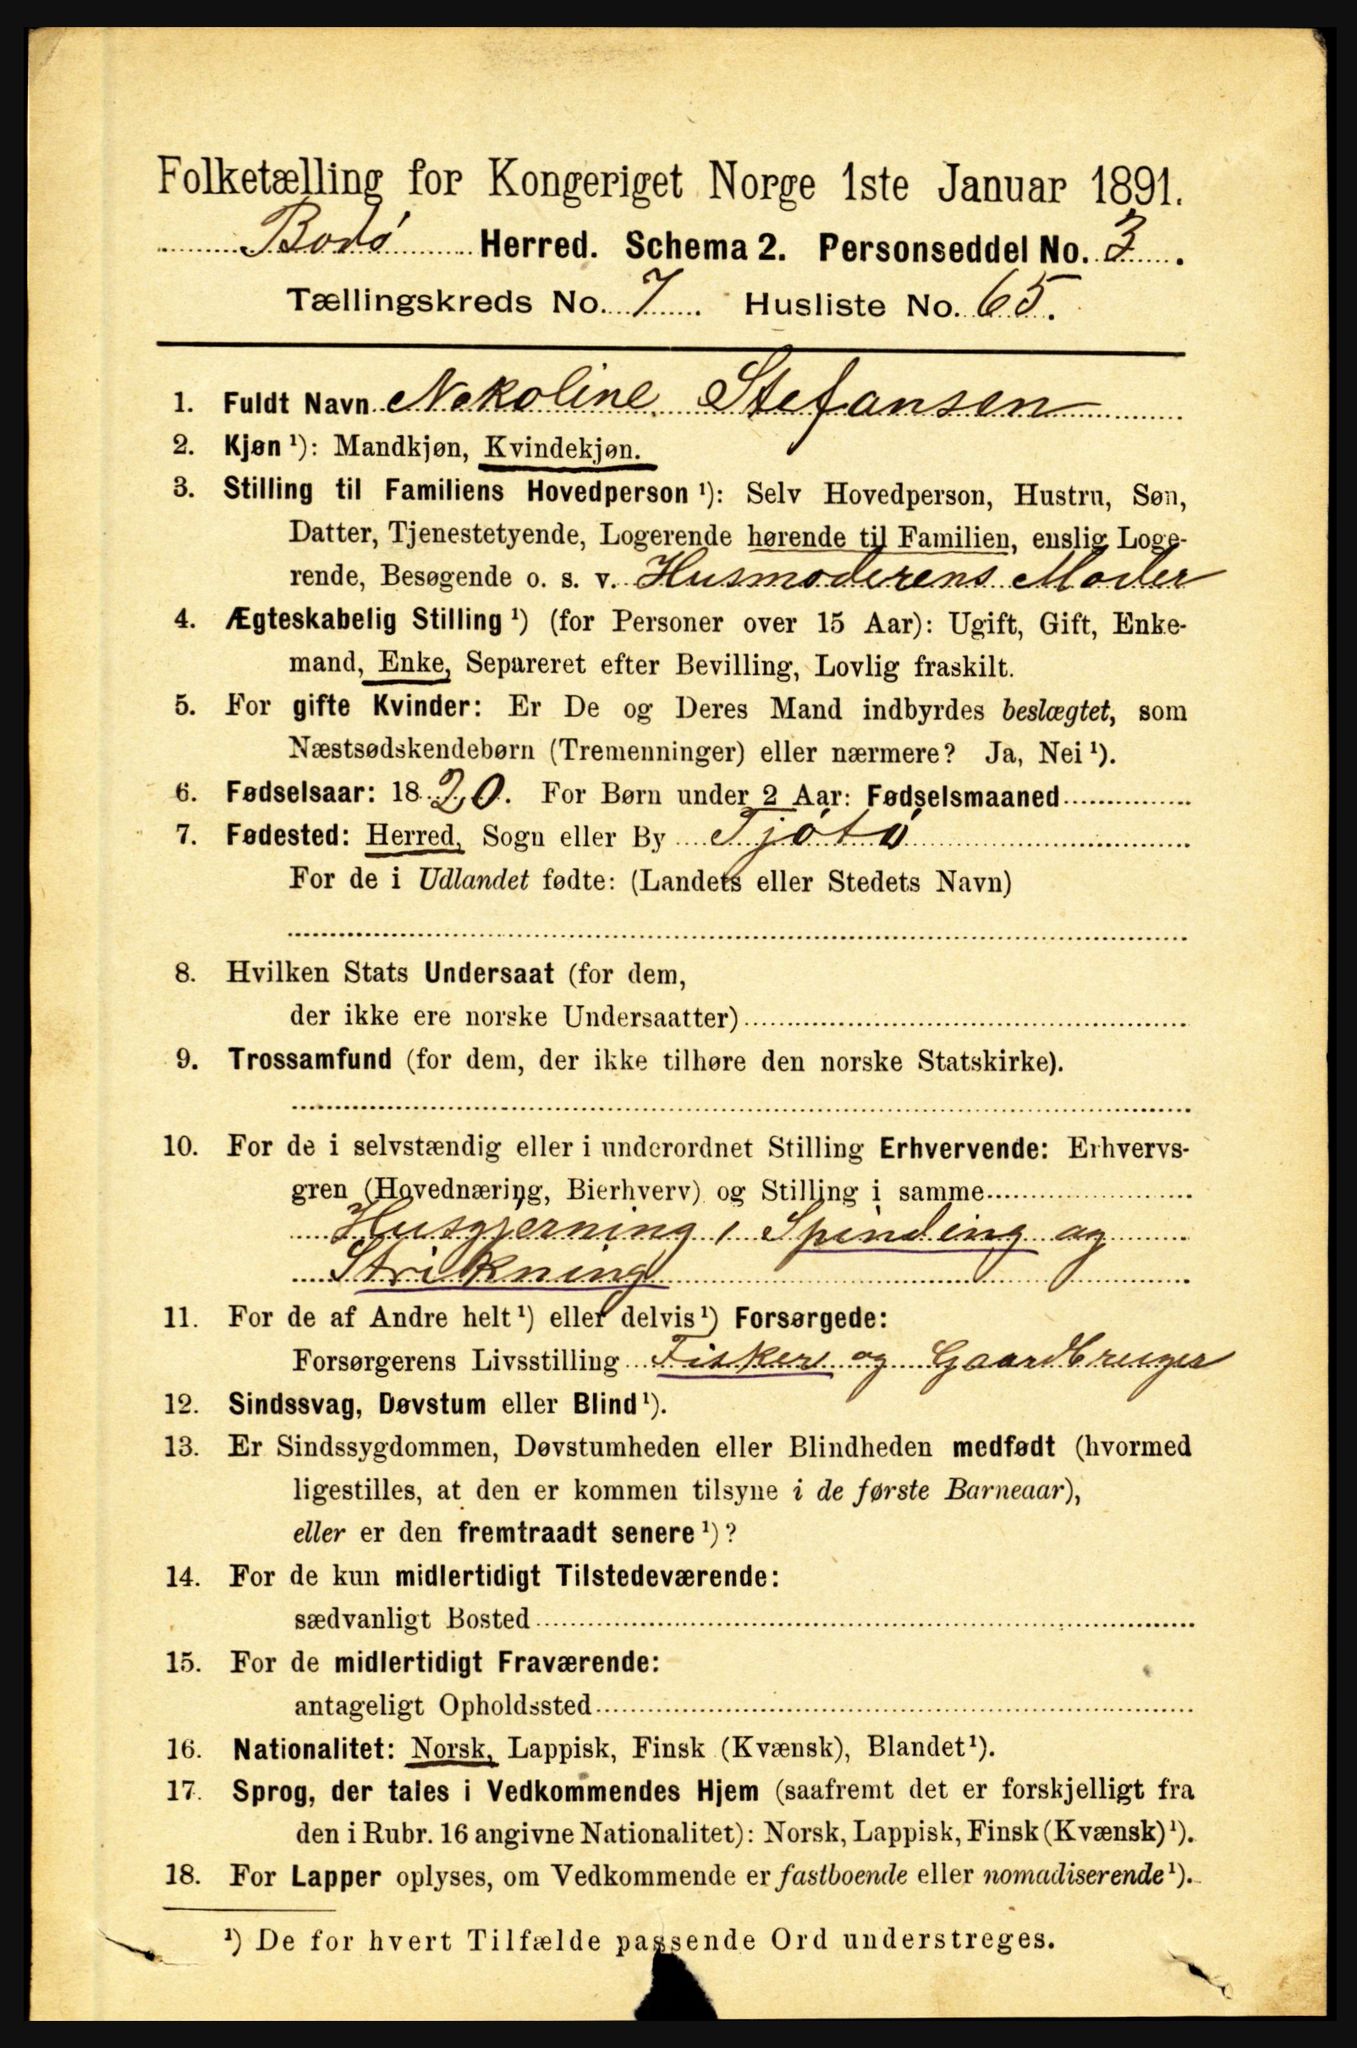 Folketælling for Kongeriget Norge 1ste Januar 1891.
Bodø Herred. Schema 2. Personseddel No. 3.
Tællingskreds No. 7 Husliste No. 65.
1. Fuldt Navn Nekoline Stefansen
2. Kjøn ¹): Mandkjøn, Kvindekjøn.
3. Stilling til Familiens Hovedperson ¹): Selv Hovedperson, Hustru, Søn,
Datter, Tjenestetyende, Logerende hørende til Familien, enslig Loge-
rende, Besøgende o. s. v. Husmoderens Moder
4. Ægteskabelig Stilling ¹) (for Personer over 15 Aar): Ugift, Gift, Enke-
mand, Enke, Separeret efter Bevilling, Lovlig fraskilt.
5. For gifte Kvinder: Er De og Deres Mand indbyrdes beslægtet, som
Næstsødskendebørn (Tremenninger) eller nærmere? Ja, Nei ¹).
6. Fødselsaar: 1820. For Børn under 2 Aar: Fødselsmaaned
7. Fødested: Herred, Sogn eller By Tjøtø
For de i Udlandet fødte: (Landets eller Stedets Navn)
8. Hvilken Stats Undersaat (for dem,
der ikke ere norske Undersaatter)
9. Trossamfund (for dem, der ikke tilhøre den norske Statskirke).
10. For de i selvstændig eller i underordnet Stilling Erhvervende: Erhvervs-
gren (Hovednæring, Bierhverv) og Stilling i samme
Husgjerning, Spinding og
Strikning
11. For de af Andre helt ¹) eller delvis ¹) Forsørgede:
Forsørgerens Livsstilling Fisker og Gaardbruger
12. Sindssvag, Døvstum eller Blind ¹).
13. Er Sindssygdommen, Døvstumheden eller Blindheden medfødt (hvormed
ligestilles, at den er kommen tilsyne i de første Barneaar),
eller er den fremtraadt senere ¹)?
14. For de kun midlertidigt Tilstedeværende:
sædvanligt Bosted
15. For de midlertidigt Fraværende:
antageligt Opholdssted
16. Nationalitet: Norsk, Lappisk, Finsk (Kvænsk), Blandet ¹).
17. Sprog, der tales i Vedkommendes Hjem (saafremt det er forskjelligt fra
den i Rubr. 16 angivne Nationalitet): Norsk, Lappisk, Finsk (Kvænsk) ¹).
18. For Lapper oplyses, om Vedkommende er fastboende eller nomadiserende ¹).
¹) De for hvert Tilfælde passende Ord understreges.